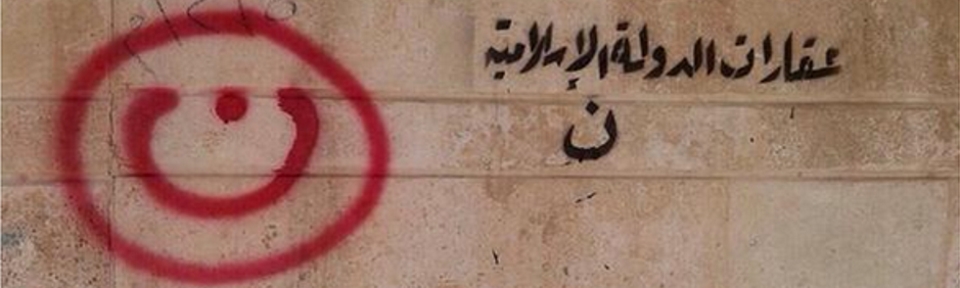 ن
عقارات الدولة الإسلامية
ن